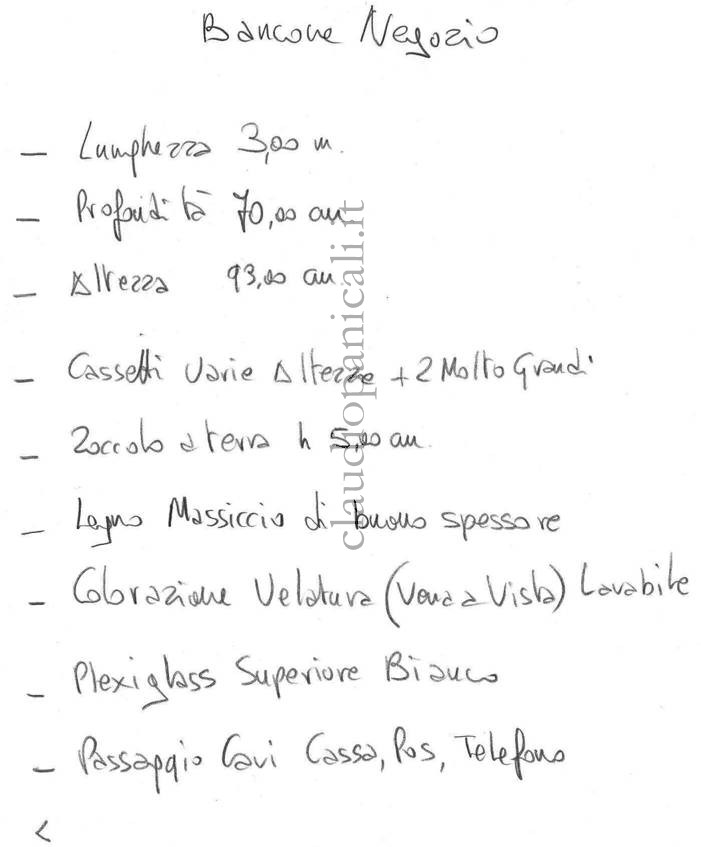 Bancone Negozio
- Lunghezza 3,00 m.
- Profondità 70,00 cm
- Altezza 93,00 cm
- Cassetti Varie Altezze + 2 Molto Grandi
- Zoccolo a terra h 5,00 cm.
- Legno Massiccio di buono spessore
- Colorazione Velatura (Vena a Vista) Lavabile
- Plexiglass Superiore Bianco
- Passaggio Cavi Cassa, Pos, Telefono
<
claudiopanicali.it